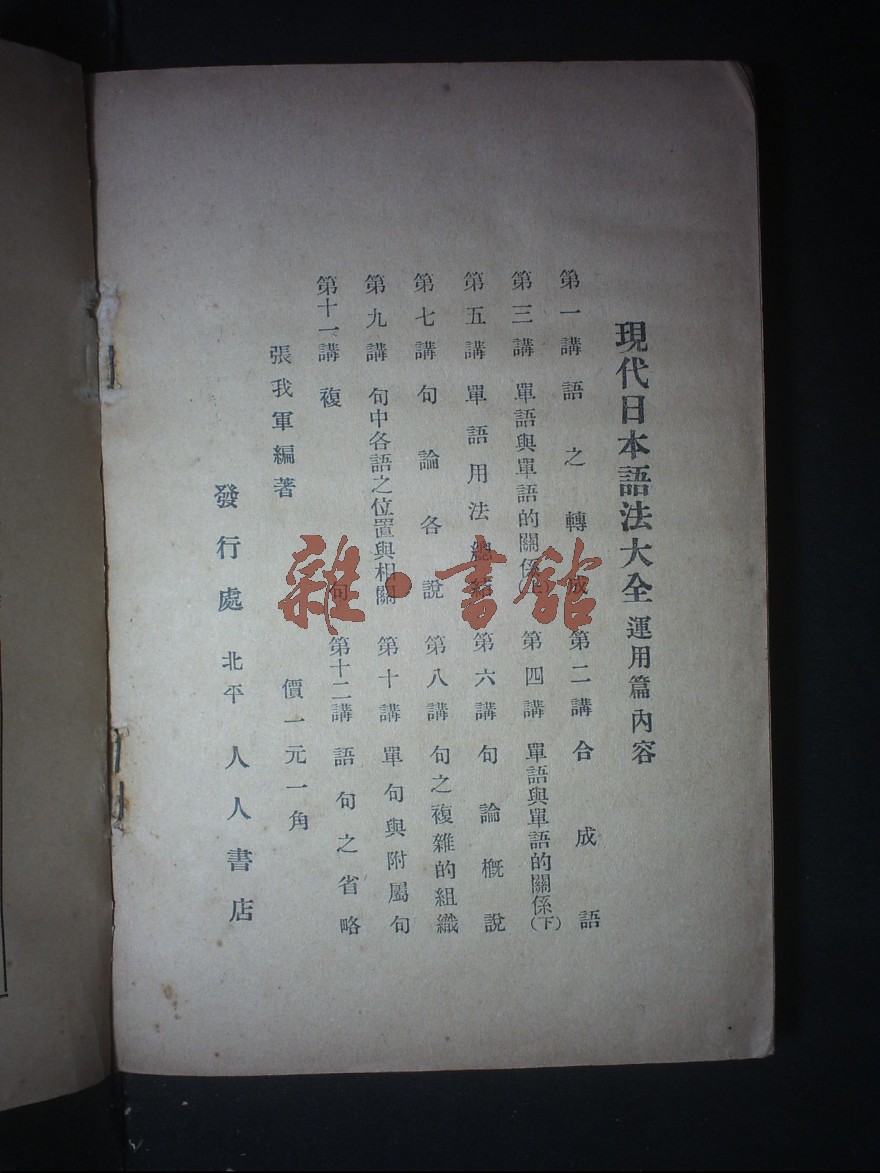 現代日本語法大全 運用篇內容
第一講 語之轉成 第二講 合成語
第三講 單語與單語的關係(上) 第四講 單語與單語的關係(下)
第五講 單語用法總結 第六講 句論概說
第七講 句論各說 第八講 句之複雜的組織
第九講 句中各語之位置與相關 第十講 單句與附屬句
第十一講 複句 第十二講 語句之省略
張我軍編著 價一元一角
發行處 北平 人人書店
雜·書館